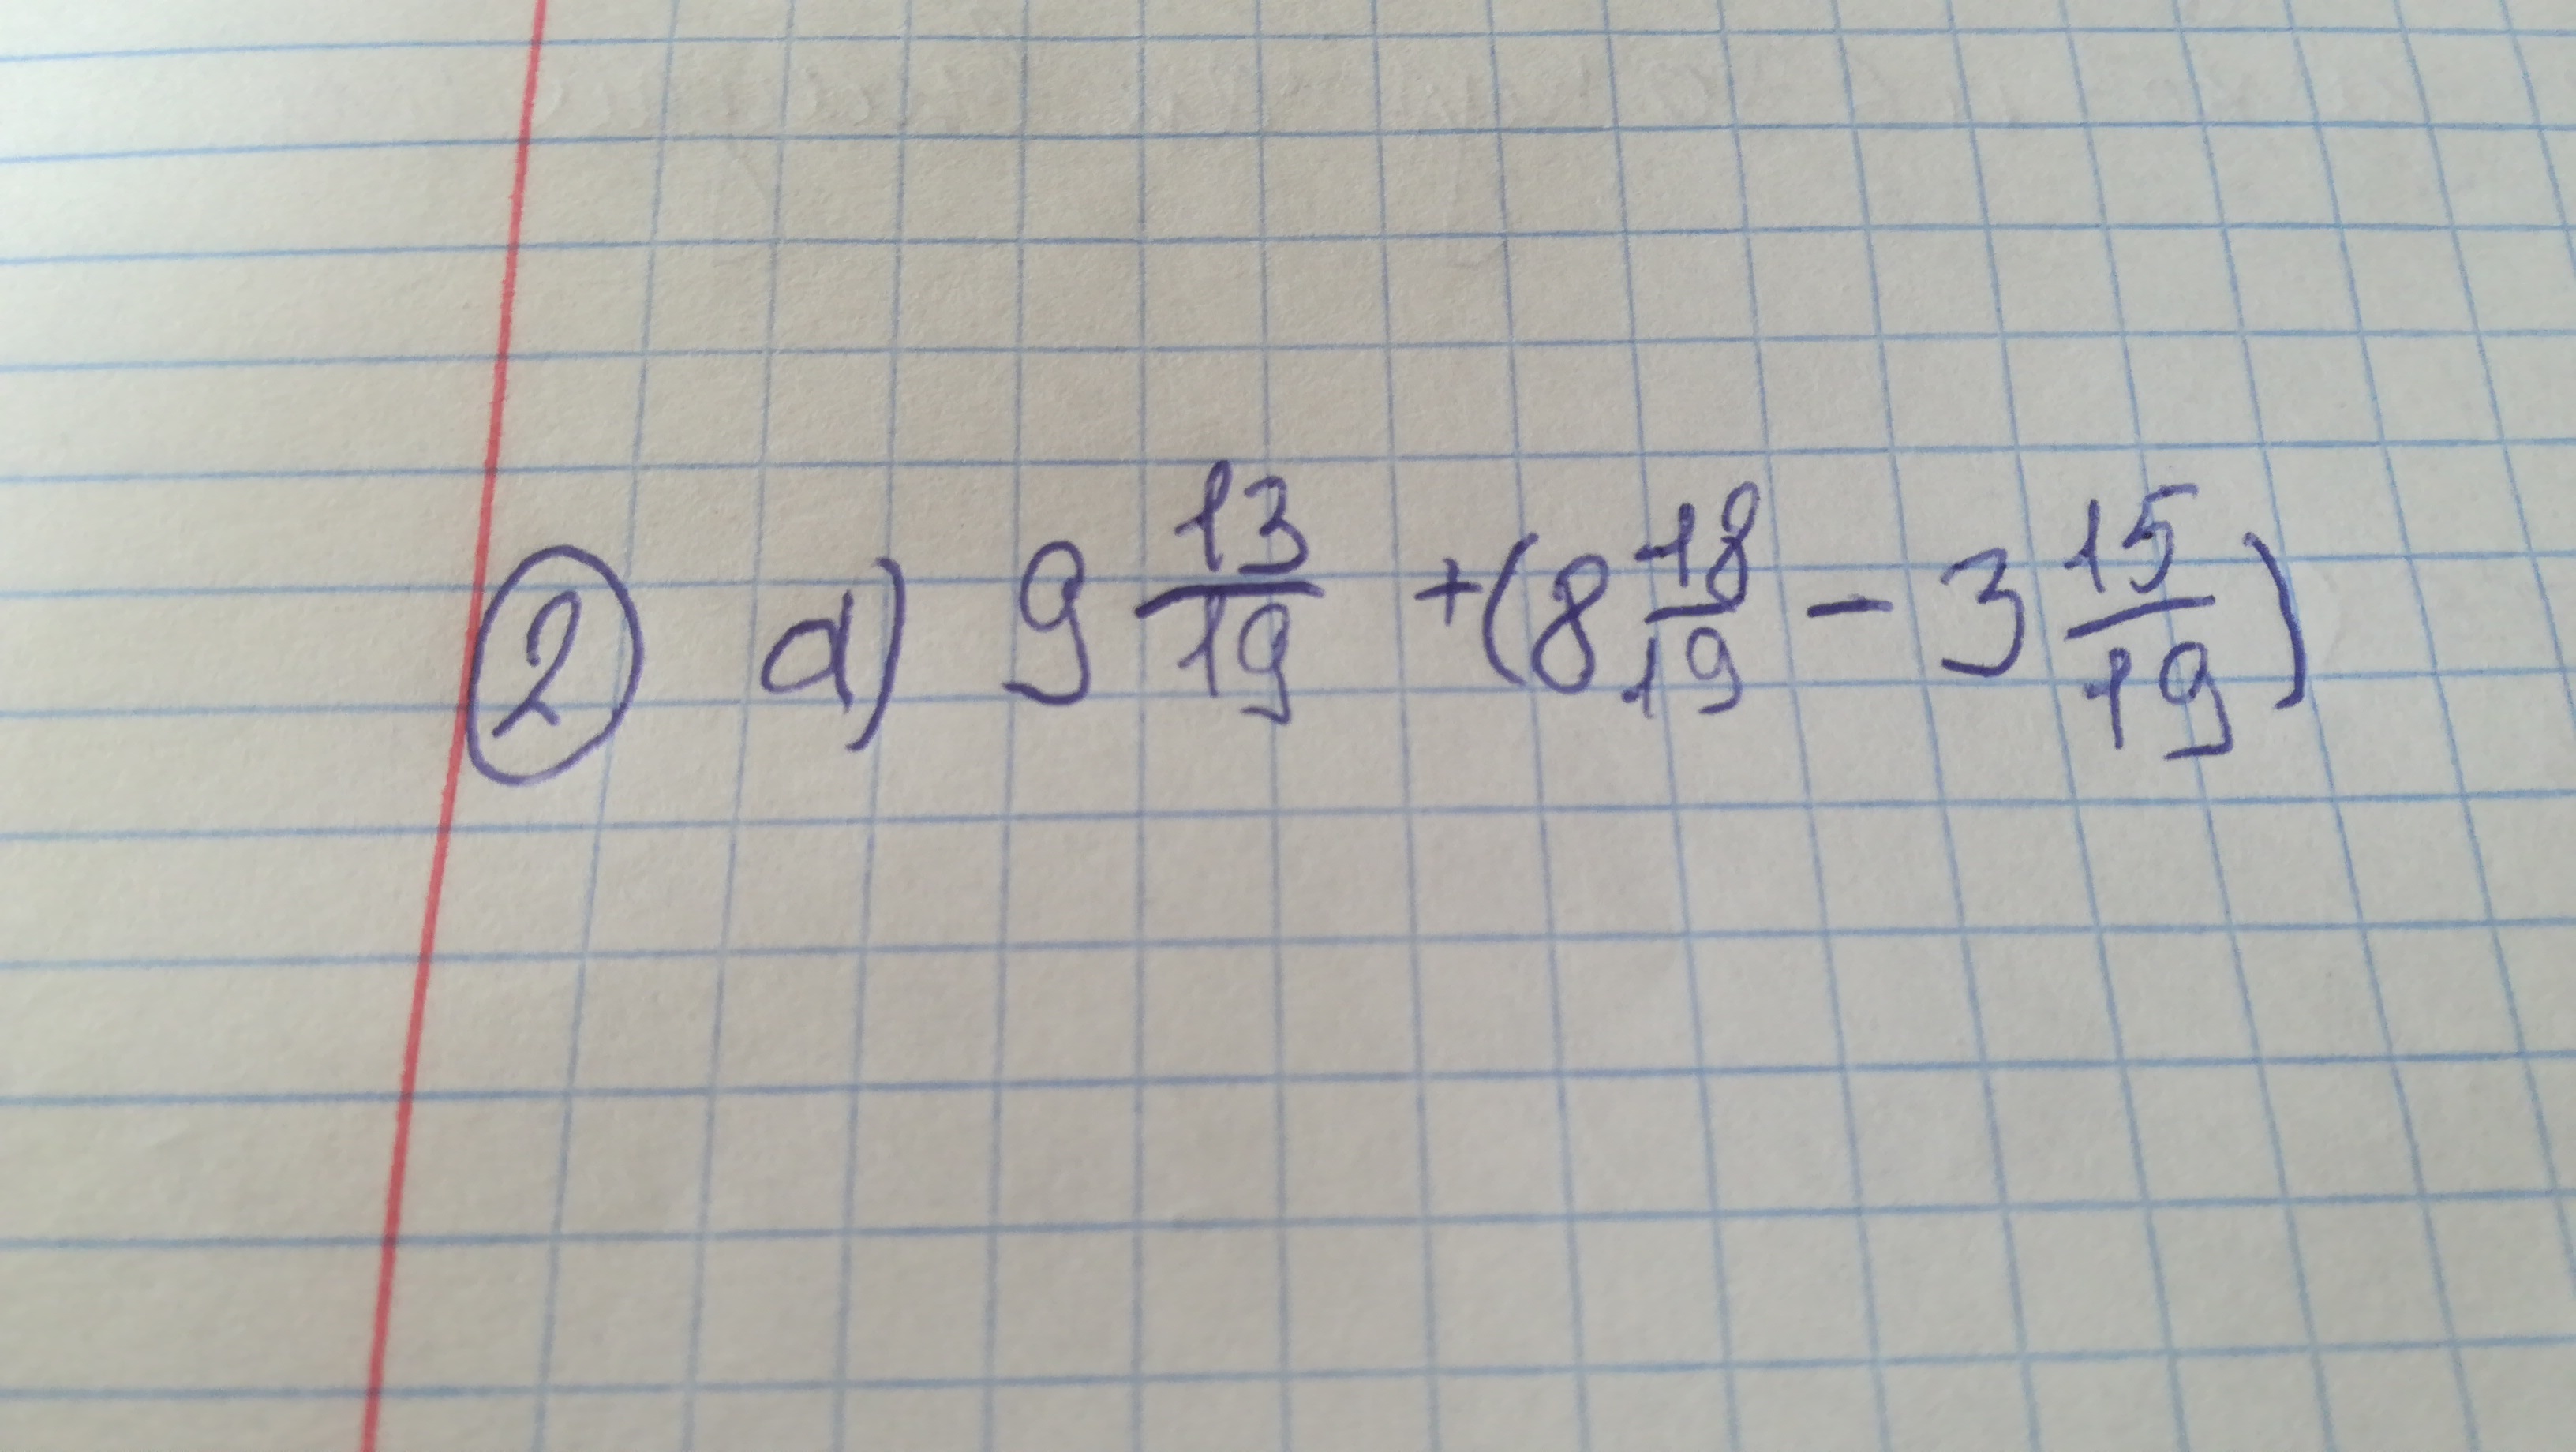 2 а) 9 13/19 + (8 18/19 - 3 15/19)